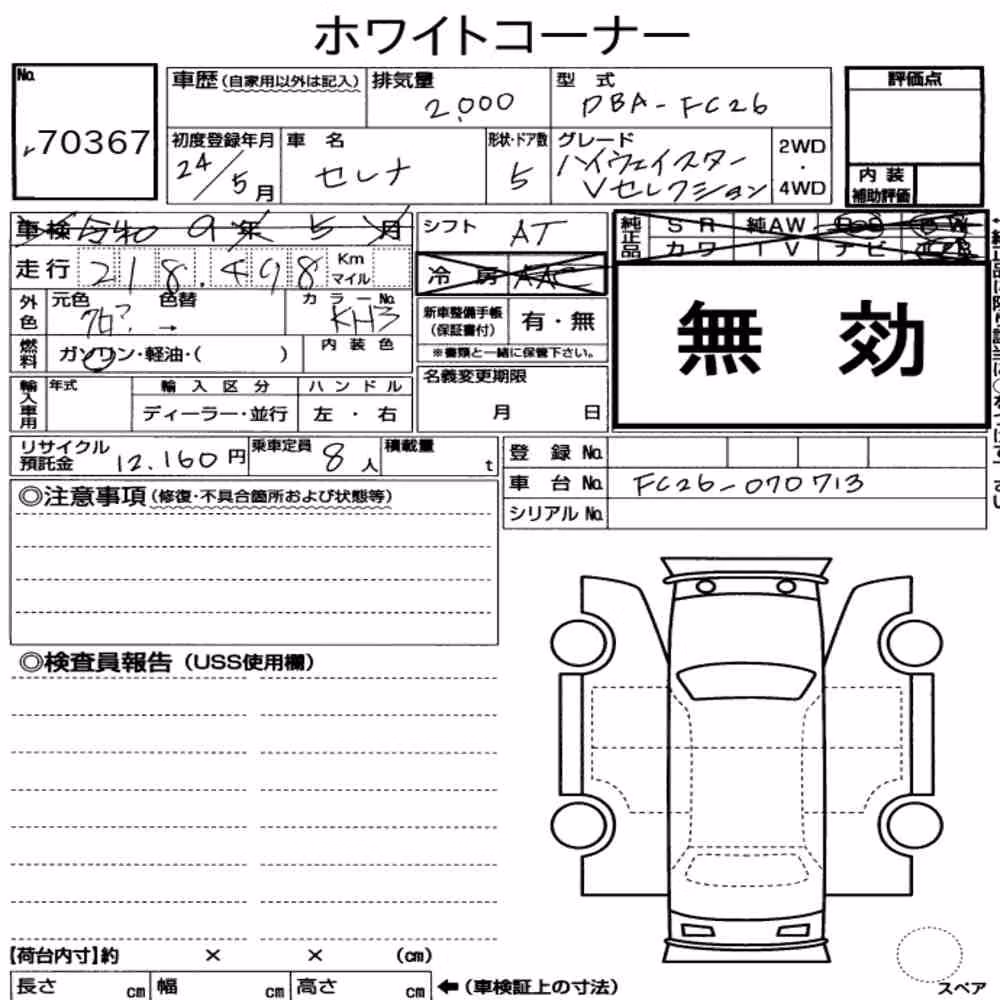 ホワイトコーナー
No. 70367
車歴(自家用以外は記入)
排気量 2,000
型式 DBA-FC26
評価点
初度登録年月 24/5月
車名 セレナ
形状・ドア数 5
グレード ハイウェイスター Vセレクション
2WD・4WD
内装補助評価
車検 令和 9年 5月
シフト AT
純正品 SR 純AW
カワ TV ナビ
走行 218,498 Km マイル
冷房 AAC
無効
外色 元色 色替 → カラーNo. KH3
新車整備手帳(保証書付) 有・無
※書類と一緒に保管下さい。
燃料 ガソリン・軽油・( )
内装色
輸入車用 年式 輸入区分 ハンドル
ディーラー・並行 左・右
名義変更期限
月 日
リサイクル預託金 12,160円
乗車定員 8人
積載量 t
登録No.
車台No. FC26-070713
シリアルNo.
◎注意事項(修復・不具合箇所および状態等)
◎検査員報告(USS使用欄)
【荷台内寸】約 × × (cm)
長さ cm 幅 cm 高さ cm ←(車検証上の寸法)
スペア